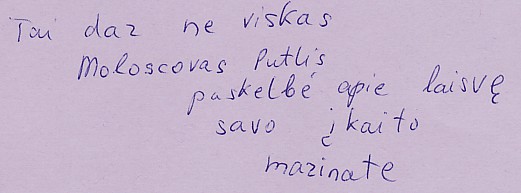 Tai daz ne viskas
Moloscovas Putlis
paskelbė apie laisvę
savo įkaito
mazinate